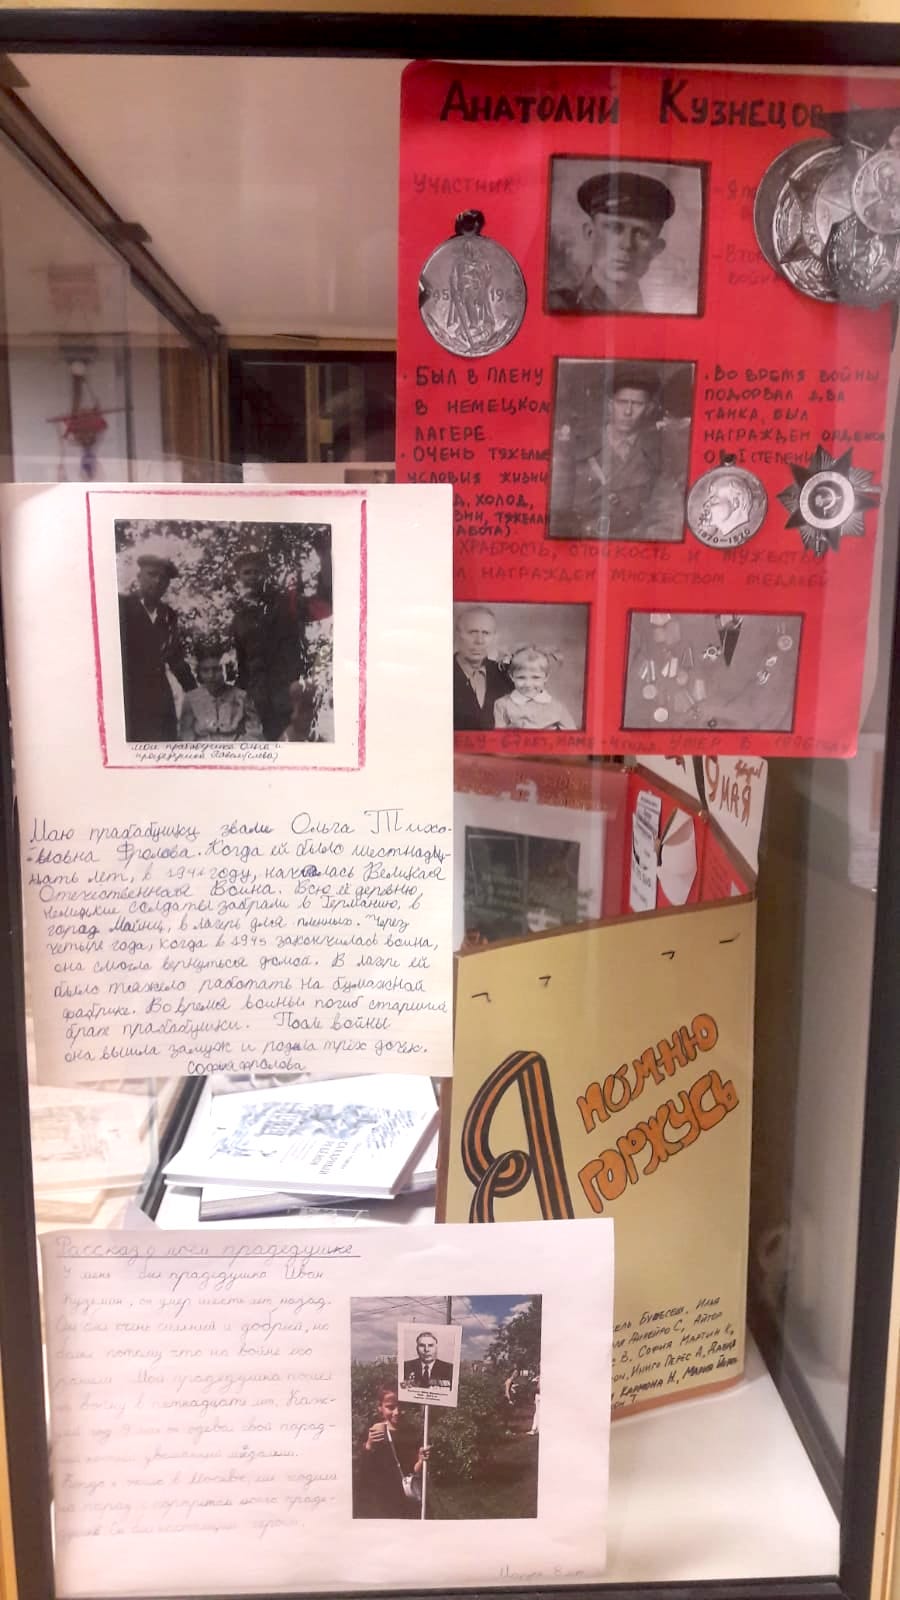 Анатолий Кузнецов
УЧАСТНИК
- ВТОР
ВОЙН
1945 1965
· БЫЛ В ПЛЕНУ
В НЕМЕЦКОМ
ЛАГЕРЕ.
· ОЧЕНЬ ТЯЖЕЛЫЕ
УСЛОВИЯ ЖИЗНИ
Д, ХОЛОД,
ЗНИ, ТЯЖЕЛАЯ
АБОТА)
· ВО ВРЕМЯ ВОЙНЫ
ПОДОРВАЛ ДВА
ТАНКА, БЫЛ
НАГРАЖДЕН ОРДЕНОМ
О.В. I СТЕПЕНИ
1870-1970
ХРАБРОСТЬ, СТОЙКОСТЬ И МУЖЕСТВО
Л НАГРАЖДЕН МНОЖЕСТВОМ МЕДАЛЕЙ
ЕДУ - 67 ЛЕТ, МАМЕ - 4 ГОДА. УМЕР В 1996 ГОДУ
моя прабабушка Ольга и
прадедушка
Маю прабабушку звали Ольга Тихо-
новна Фролова. Когда ей было шестнадц-
цать лет, в 1941 году, началась Великая
Отечественная Война. Всю её деревню,
немецкие солдаты забрали в Германию, в
город Майнц, в лагерь для пленных. Через
четыре года, когда в 1945 закончилась война,
она смогла вернуться домой. В лагере ей
было тяжело работать на бумажной
фабрике. Во время войны погиб старший
брат прабабушки. После войны
она вышла замуж и родила трёх дочек.
СОФИЯ ФРОЛОВА
9 МАЯ
Я ПОМНЮ
ГОРЖУСЬ
Рассказ о моём прадедушке
У меня был прадедушка Иван
Кузьмич, он умер шесть лет назад.
Он был очень сильный и добрый, но
болел потому что на войне его
ранили. Мой прадедушка пошёл
на войну в пятнадцать лет. Каж-
дый год 9 мая он одевал свой парад-
ный костюм увешанный медалями.
Когда я жила в Москве, мы ходили
на парад с портретом моего праде-
душки. Он был настоящим героем.
ИЛЬЯ
СОФИЯ МАРТИН К,
ИНИГО ПЕРЕС А, ДАВИД
КАРМОНА Н, МАРИЯ